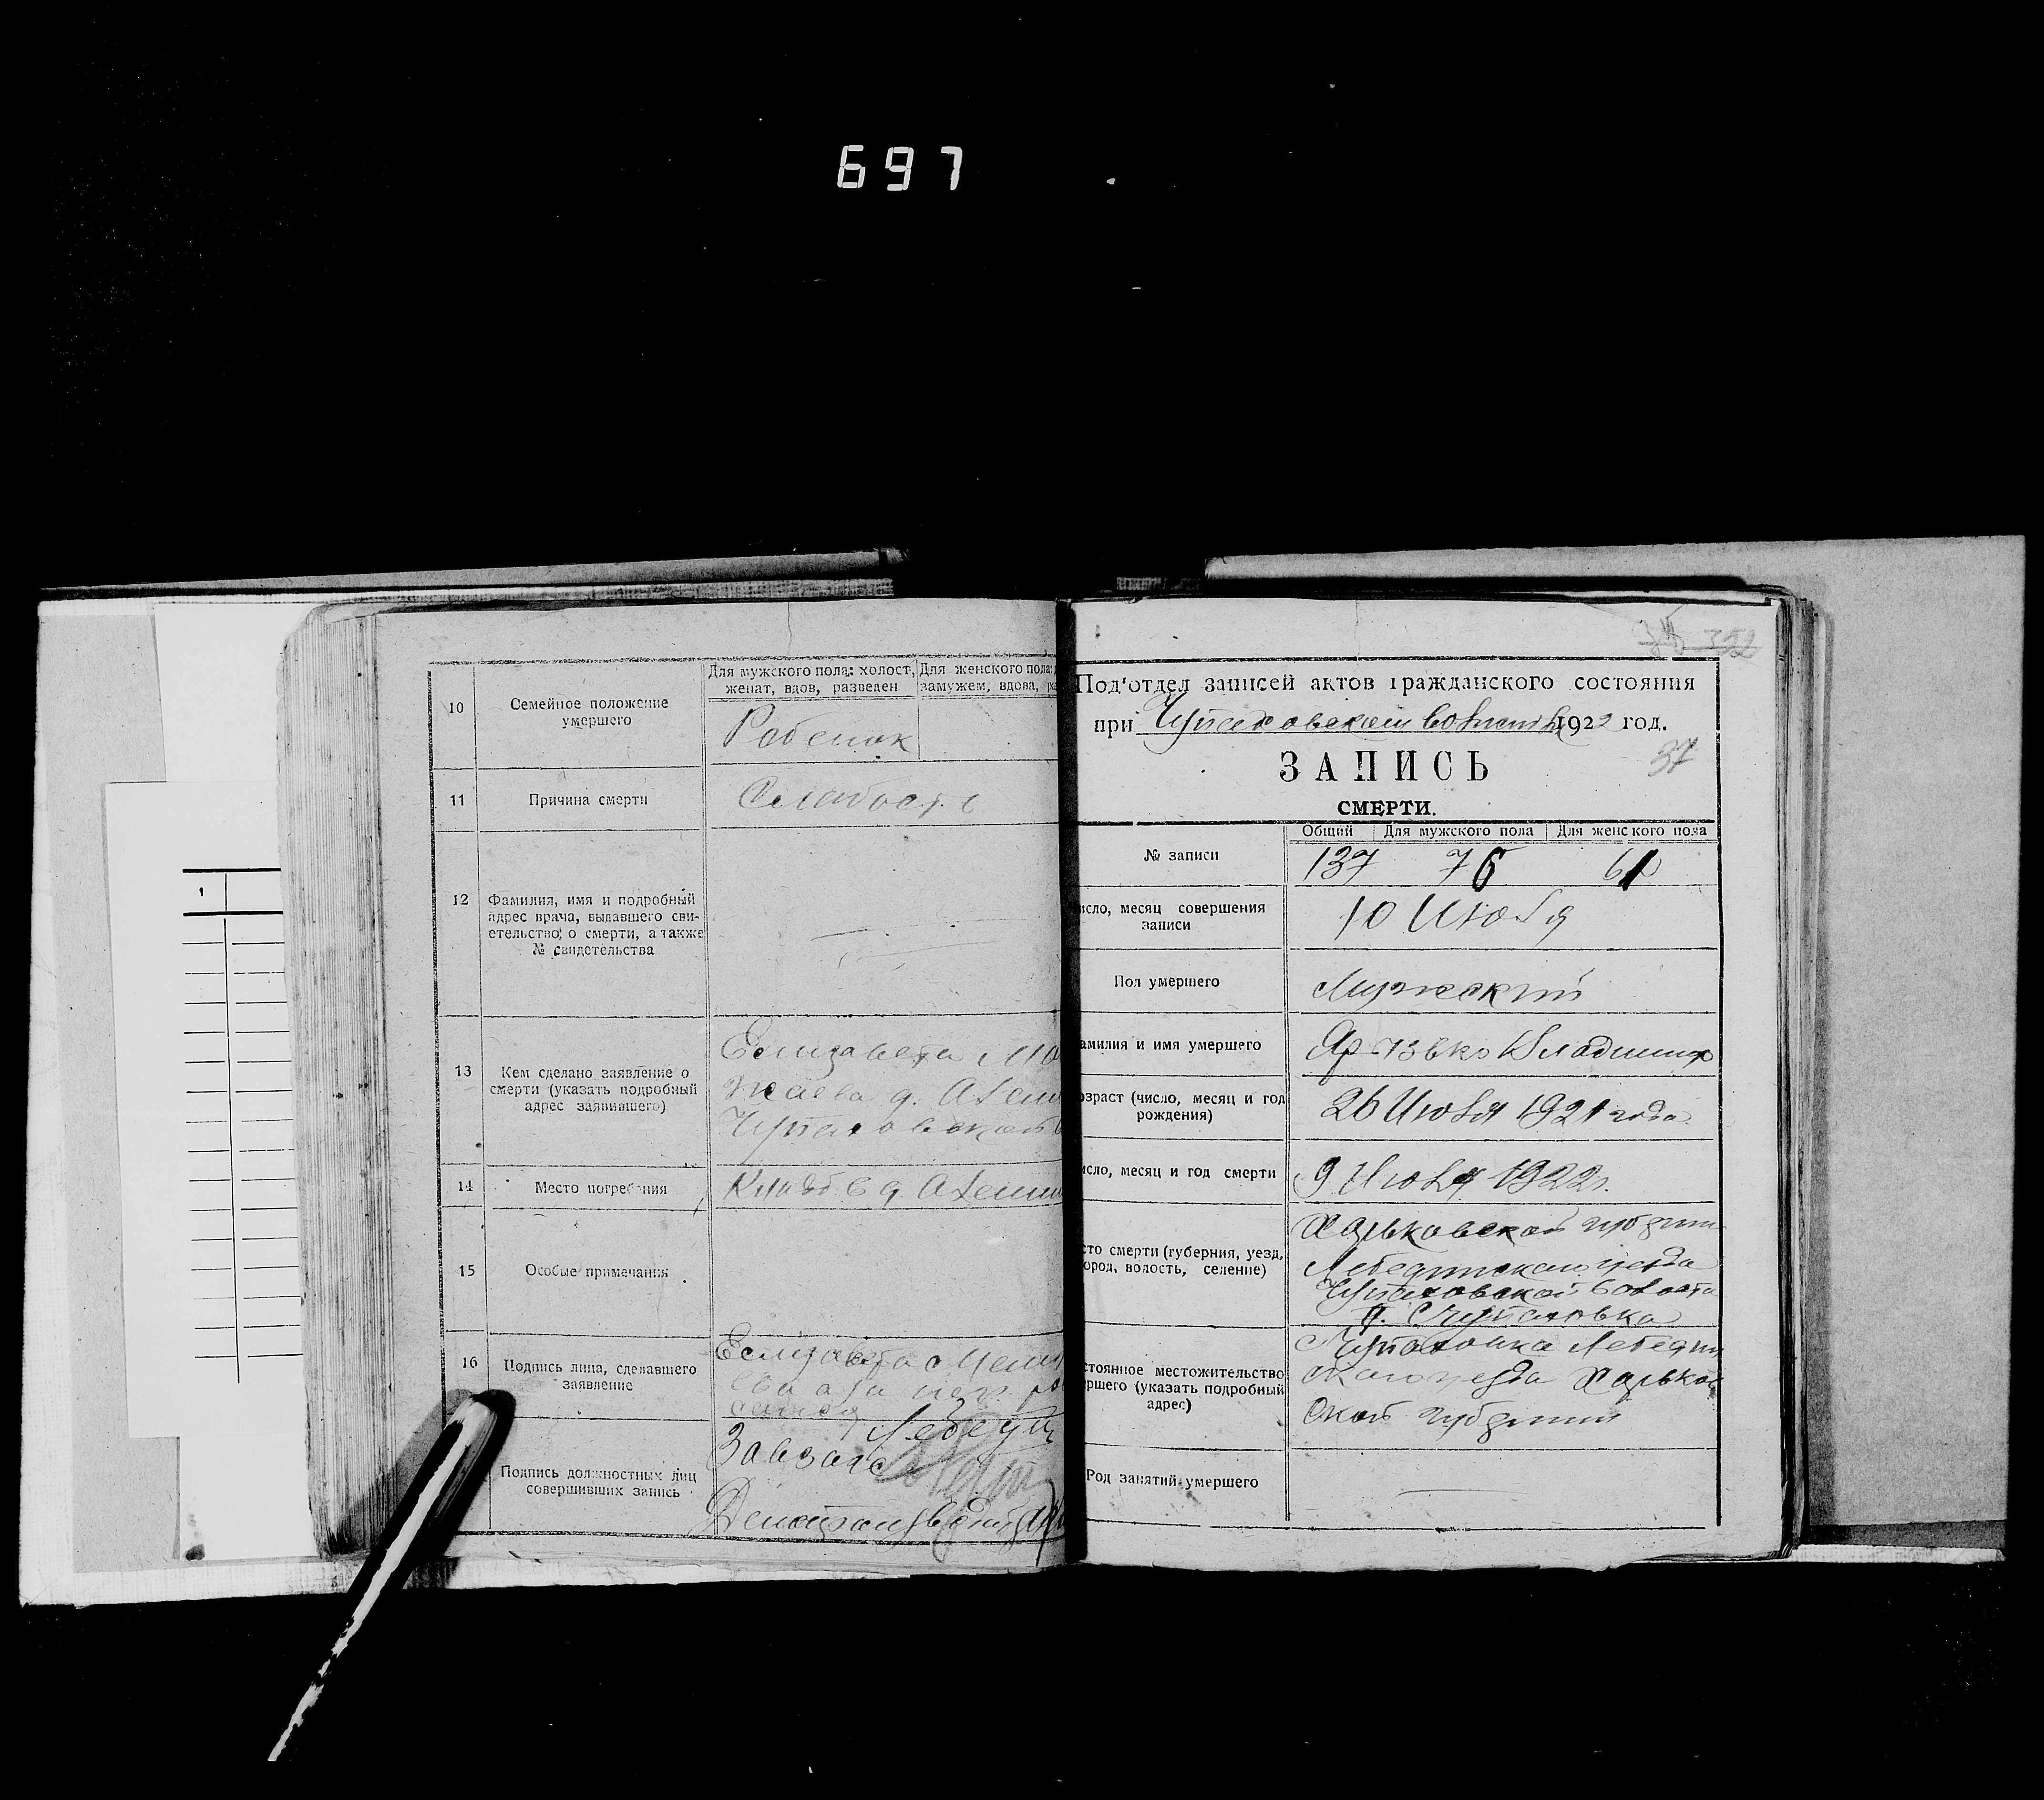 697
10
Семейное положение
умершего
Для мужского пола: холост,
женат, вдов, разведен
Для женского пола:
замужем, вдова,
Ребенок
11
Причина смерти
Слабость
12
Фамилия, имя и подробный
адрес врача, выдавшего сви-
етельство о смерти, а также
№ свидетельства
13
Кем сделано заявление о
смерти (указать подробный
адрес заявившего)
Елизавета
Чупаховской
14
Место погребения
Кладб в д.
15
Особые примечания
16
Подпись лица, сделавшего
заявление
Елизавета
Подпись должностных лиц
совершивших запись
Завзагс
1
352
Под'отдел записей актов гражданского состояния
при Чупаховском 1922 год.
37
ЗАПИСЬ
СМЕРТИ.
Общий
Для мужского пола
Для женского пола
№ записи
137 76 61
исло, месяц совершения
записи
10 Июля
Пол умершего
Мужский
амилия и имя умершего
Владимир
озраст (число, месяц и год
рождения)
26 Июля 1921 года
исло, месяц и год смерти
9 Июля 1922 г.
сто смерти (губерния, уезд,
ород, волость, селение)
Харьковской губернии
Лебединскаго уезда
Чупаховской волости
Чупаховка
стоянное местожительство
ершего (указать подробный
адрес)
Чупаховка Лебедин
скаго уезда Харьков
ской губернии
Род занятий умершего